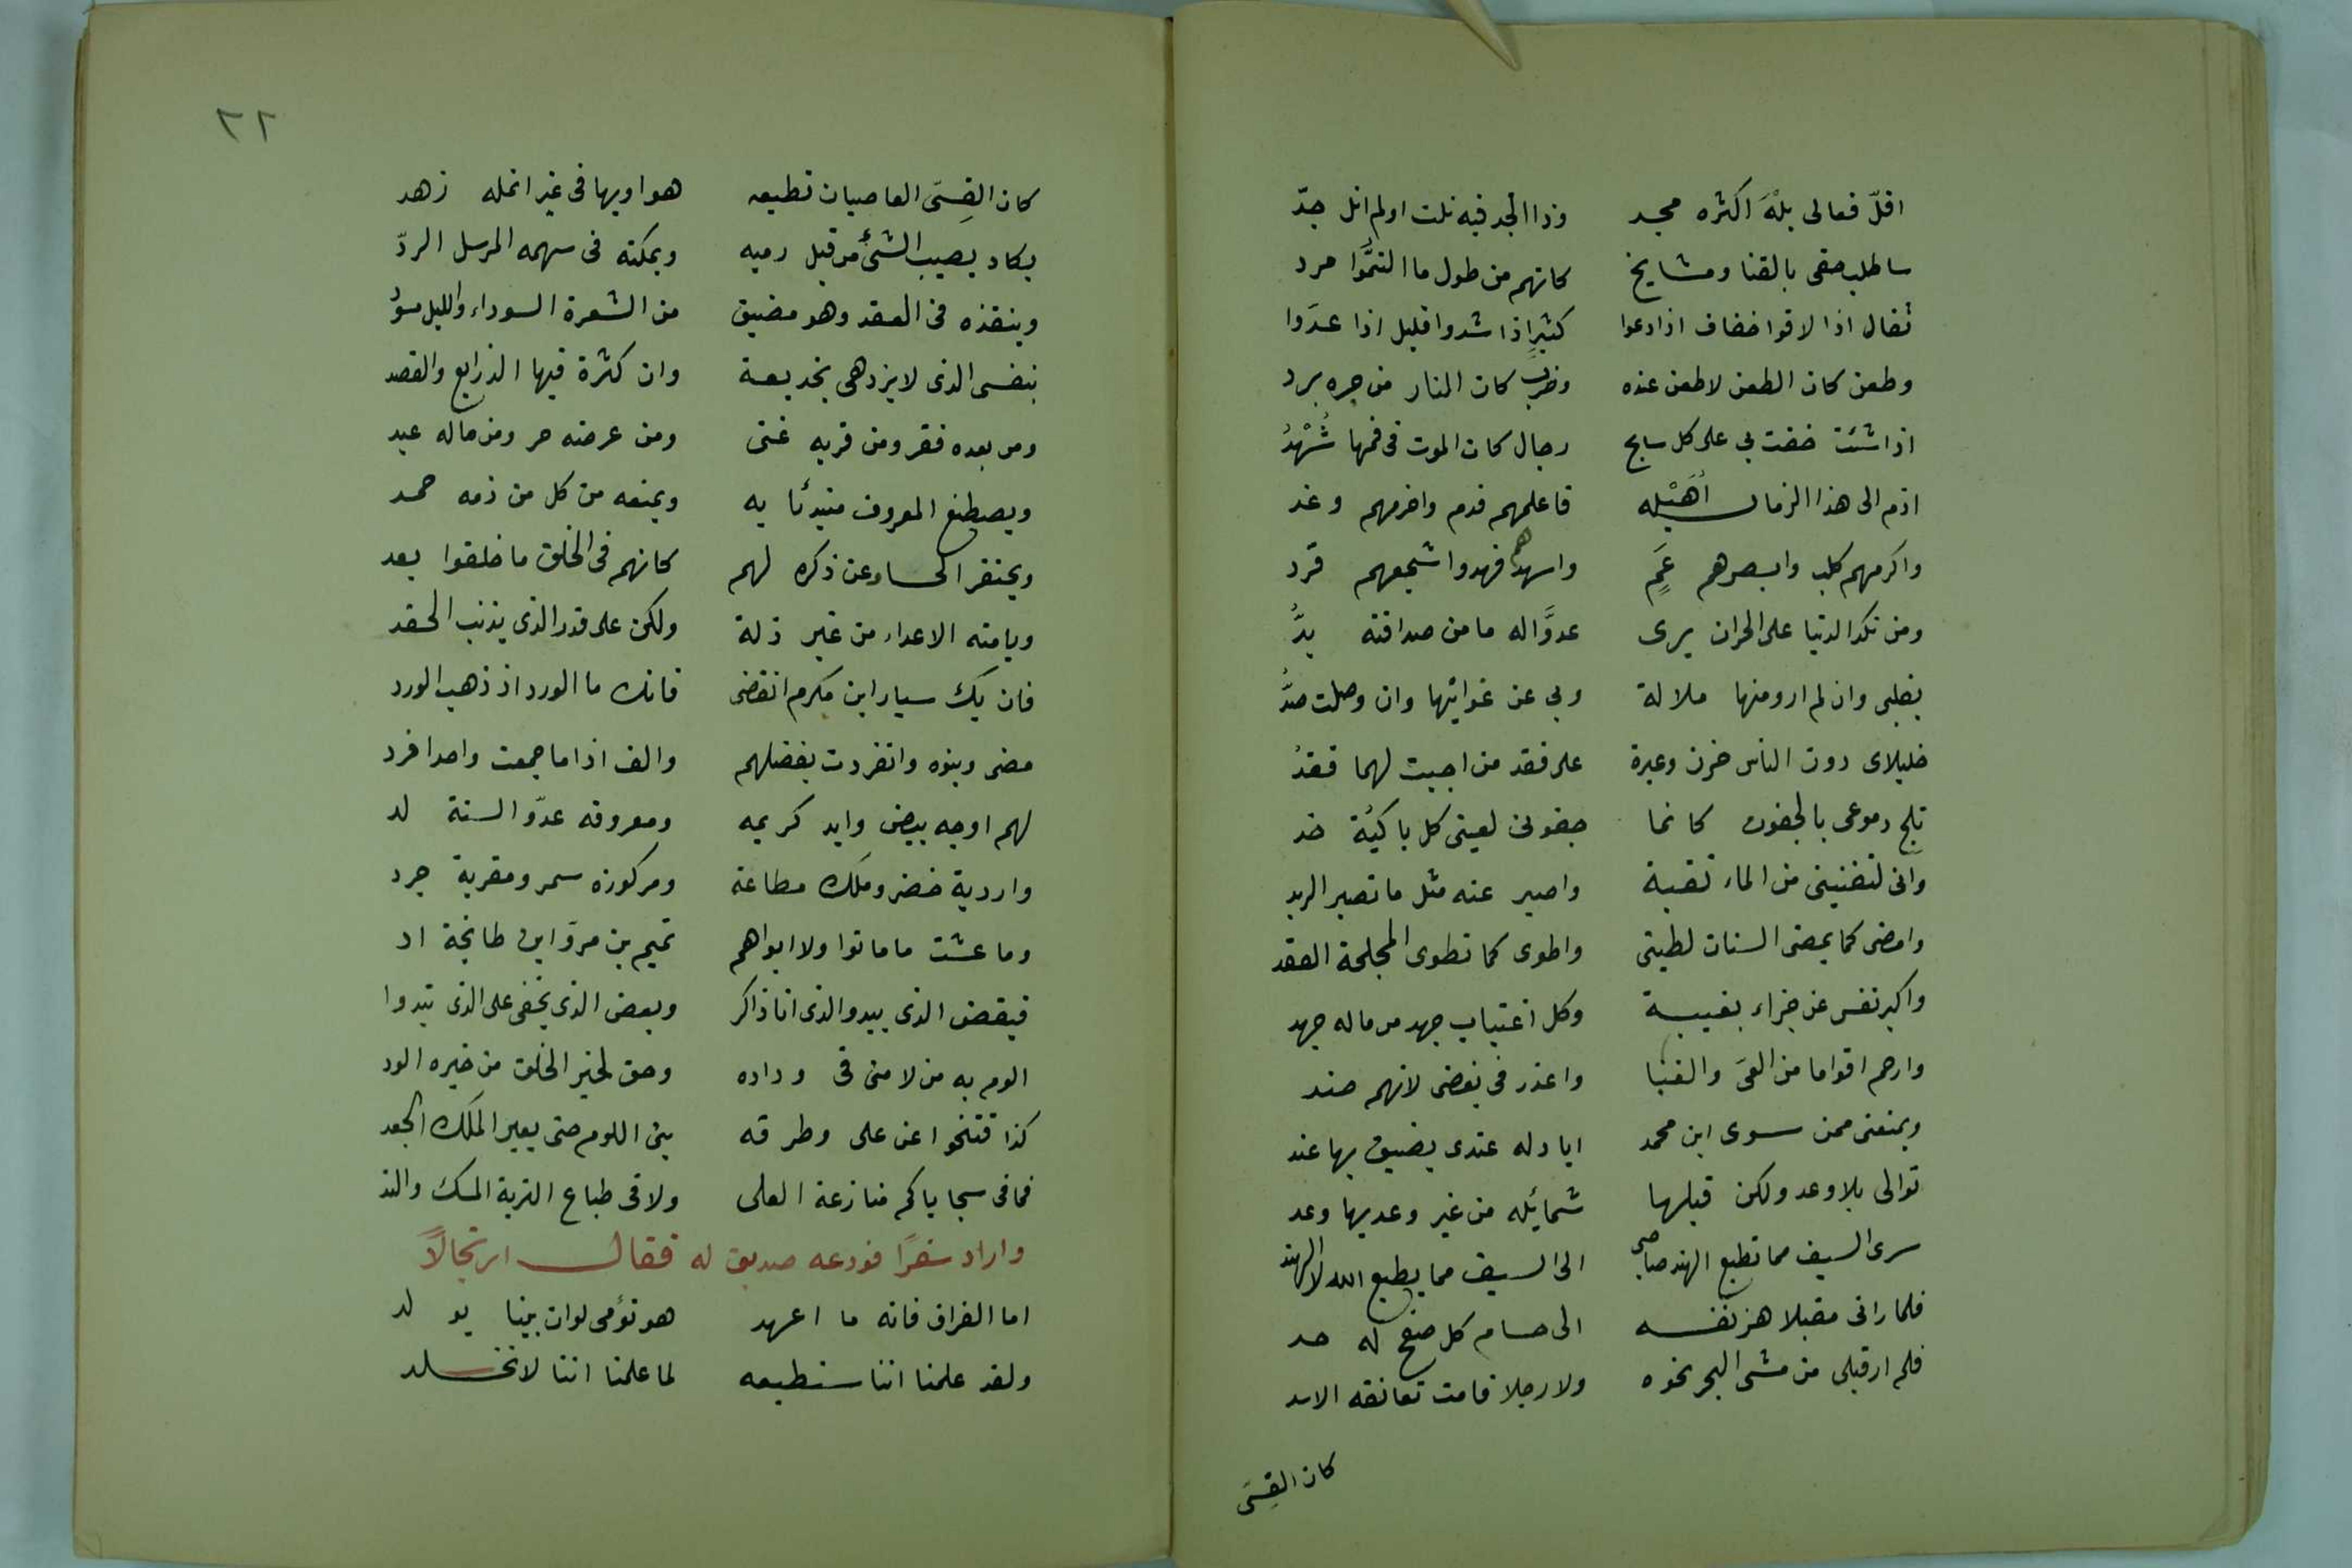 اقلّ فعالى بلْهَ اكثره مجد وذا الجد فيه نلت اولم انل جدّ
ساطلب حقى بالقنا ومشايخ كانهم من طول ما التثموا مرد
ثقال اذا لاقوا خفاف اذا دعوا كثير اذا شدوا قليل اذا عدّوا
وطعن كان الطعن لا طعن عنده وضرب كان النار من حره برد
اذا شئت حفت بى على كل سابح رجال كان الموت فى فمها شُهْدُ
اذم الى هذا الزمان اُهَيْله فاعلمهم فدم واحزمهم وغد
واكرمهم كلب وابصرهم عَمٍ واسهدهم فهد واشجعهم قرد
ومن نكد الدنيا على الحران يرى عدوَّا له ما من صداقته بدُّ
بقلبى وان لم ارو منها ملالة وبى عن غوانيها وان وصلت صدُّ
خليلاى دون الناس حزن وعبرة على فقد من احببت لهما فقدُ
تلج دموعى بالجفون كانما جفونى لعينى كل باكية خد
وانى لتغنينى من الماء نغبة واصبر عنه مثل ما تصبر الربد
وامضى كما يمضى السنان لطيتى واطوى كما تطوى المجلحة العقد
واكبر نفسى عن جزاء بغيبة وكل اغتياب جهد من ماله جهد
وارحم اقواما من العىّ والغبا واعذر فى بغضى لانهم ضد
ويمنعنى ممن سوى ابن محمد اياد له عندى يضيق بها عند
توالى بلا وعد ولكن قبلها شمائله من غير وعد بها وعد
سرى السيف مما تطبع الهند صاحبى الى السيف مما يطبع الله لا الهند
فلما رانى مقبلا هز نفسه الى حسام كل صفح له حد
فلم ار قبلى من مشى البحر نحوه ولا رجلا قامت تعانقه الاسد
كان القِسِىّ
٢٢
كان القِسِىّ العاصيات تطيعه هوا وبها فى غير انمله زهد
يكاد يصيب الشئ من قبل رميه ويمكنه فى سهمه المرسل الردّ
وينقذه فى العقد وهو مضيق من الشعرة السوداء والليل مسودُّ
بنفسى الذى لا يزدهى بخديعة وان كثرة فيها الذرايع والقصد
ومن بعده فقر ومن قربه غنى ومن عرضه حر ومن ماله عبد
ويصطنع المعروف مبتدئا به ويمنعه من كل من ذمه حمد
ويحتقر الحساد عن ذكره لهم كانهم فى الخلق ما خلقوا بعد
ويامنه الاعداء من غير ذلة ولكن على قدر الذى يذنب الحقد
فان يك سيار ابن مكرم انقضى فانك ما الورد اذ ذهب الورد
مضى وبنوه وانفردت بفضلهم والف اذا ما جمعت واحدا فرد
لهم اوجه بيض وايد كريمه ومعروفه عدّوا لسنة لد
واردية خضر وملك مطاعة ومركوزه سمر ومقربة جرد
وما عشت ما ماتوا ولا ابواهم تميم بن مرّ وابن طابخة اد
فبعض الذى يبدو الذى انا ذاكر وبعض الذى يخفى على الذى تبدوا
الوم به من لامنى فى وداده وحق لخير الخلق من خيره الود
كذا فتنحوا عن على وطرقه بنى اللوم حتى يعبر الملك الجعد
فما فى سجاياكم منازعة العلى ولا فى طباع التربة المسك والند
واراد سفرًا فودعه صديق له فقال ارتجالاً
اما الفراق فانه ما اعهد هو تؤمى لوان بينا يو لد
ولقد علمنا اننا سنطيعه لما علمنا اننا لا نخلد